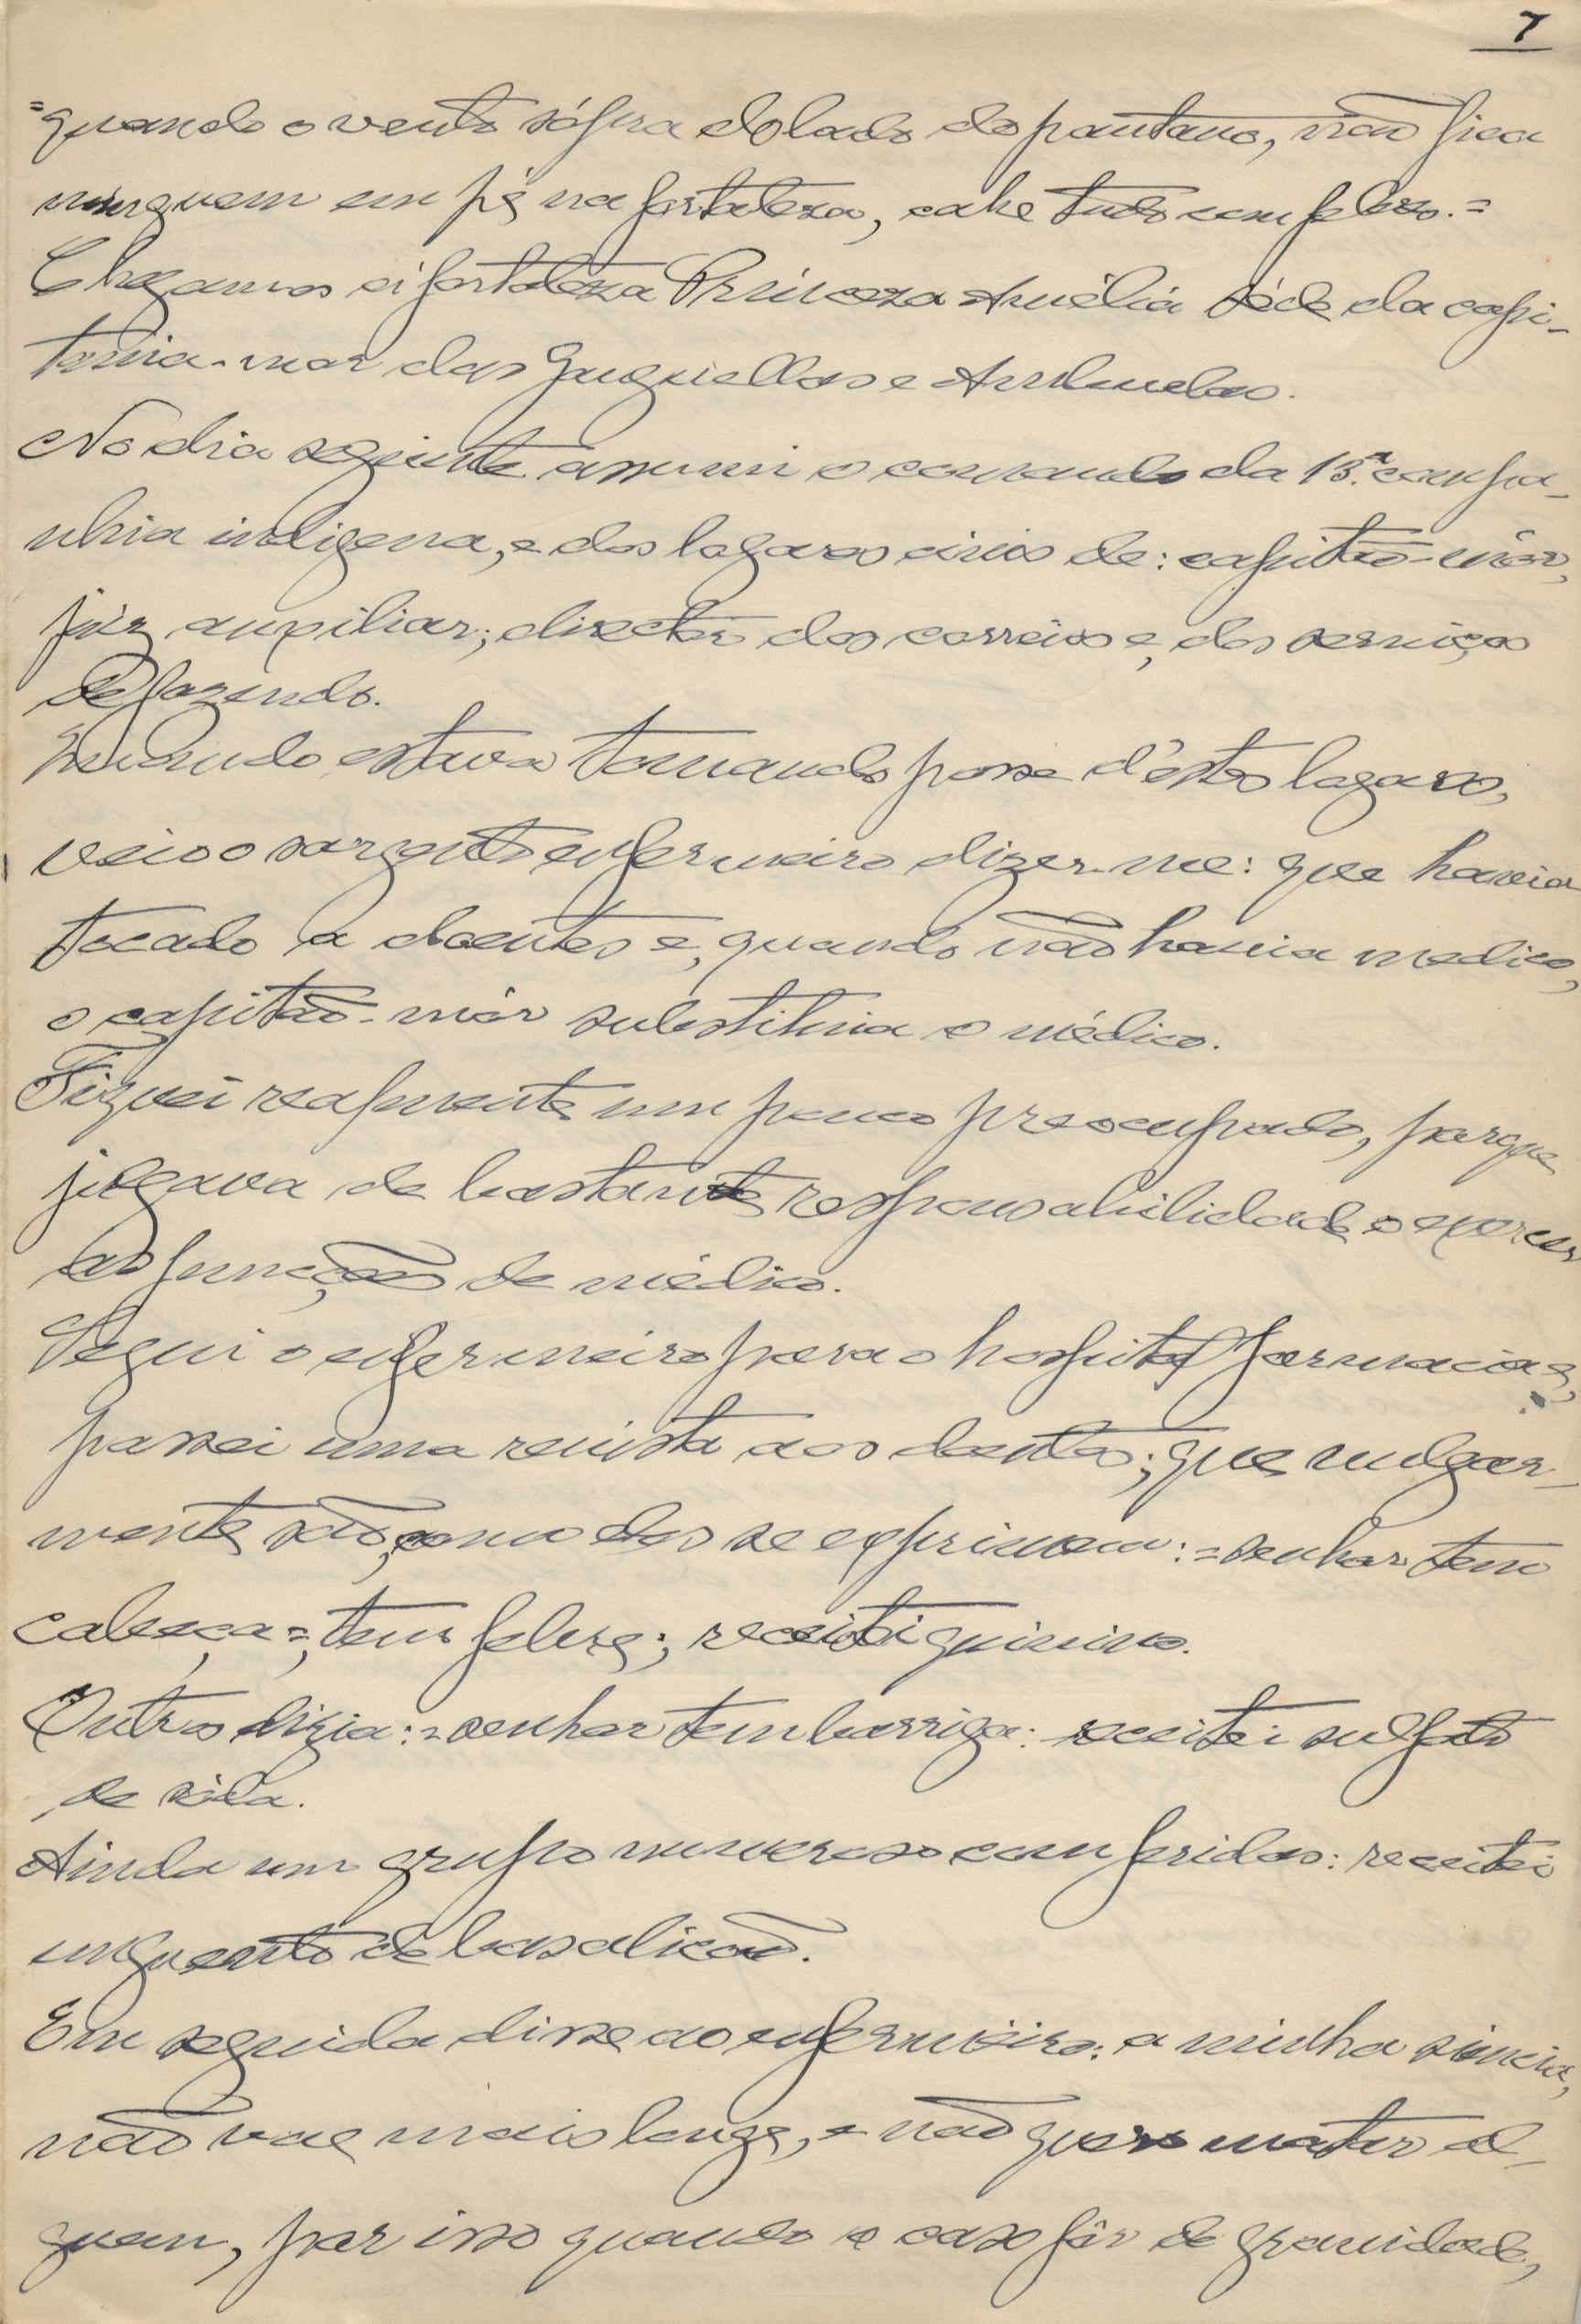 7
=quando o vento sópra do lado do pantano, não fica
ninguem em pé na fortaleza, cahe tudo com febre.=
Chegamos á fortaleza Princeza Amélia séde da capi-
tania-mór dos Ganguellas e Ambuelas.
No dia seguinte assumi o comando da 15.ª compa-
nhia indigena, e dos logares civis de: capitão-mór,
juiz auxiliar; director dos correios e, dos serviços
de fazenda.
Quando estava tomando posse d'estes logares,
veio o sargento enfermeiro dizer-me: que havia
tocado a doentes e, quando não havia medico,
o capitão-mór substituia o médico.
Fiquei realmente um pouco preocupado, porque
julgava de bastante responsabilidade o exercer
as funcções de médico.
Segui o enfermeiro para o hospital farmacia e,
passei uma revista aos doentes; que vulgar-
mente são, como eles se exprimem: =senhor tem
cabeça=; tem febre; receitei quinino.
Outros dizia:=senhor tem barriga: receitei sulfato
de sóda.
Ainda um grupo numeroso com feridas: receitei
unguento de basalicão.
Em seguida disse ao enfermeiro: a minha siencia,
não vae mais longe, e não quero matar al-
guem, por isso quando o caso fôr de gravidade,